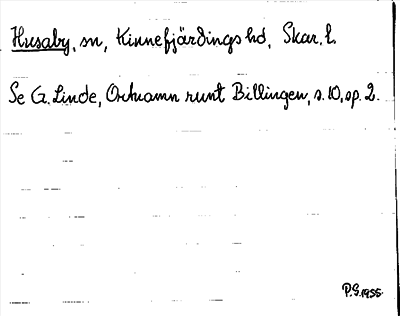 Husaby, sn, Kinnefjärdings hd, Skar. l.
Se G. Linde, Ortnamn runt Billingen, s. 10, sp. 2.
P.G. 1955.